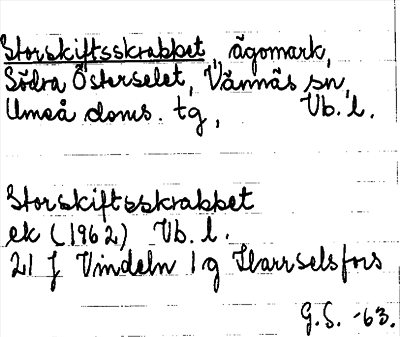 Storskiftsskrabbet, ägomark,
Södra Österselet, Vännäs sn,
Umeå doms. tg, Vb. l.
Storskiftsskrabbet
ek (1962) Vb. l.
21 J Vindeln 1 g Harrselsfors
G.S. -63.